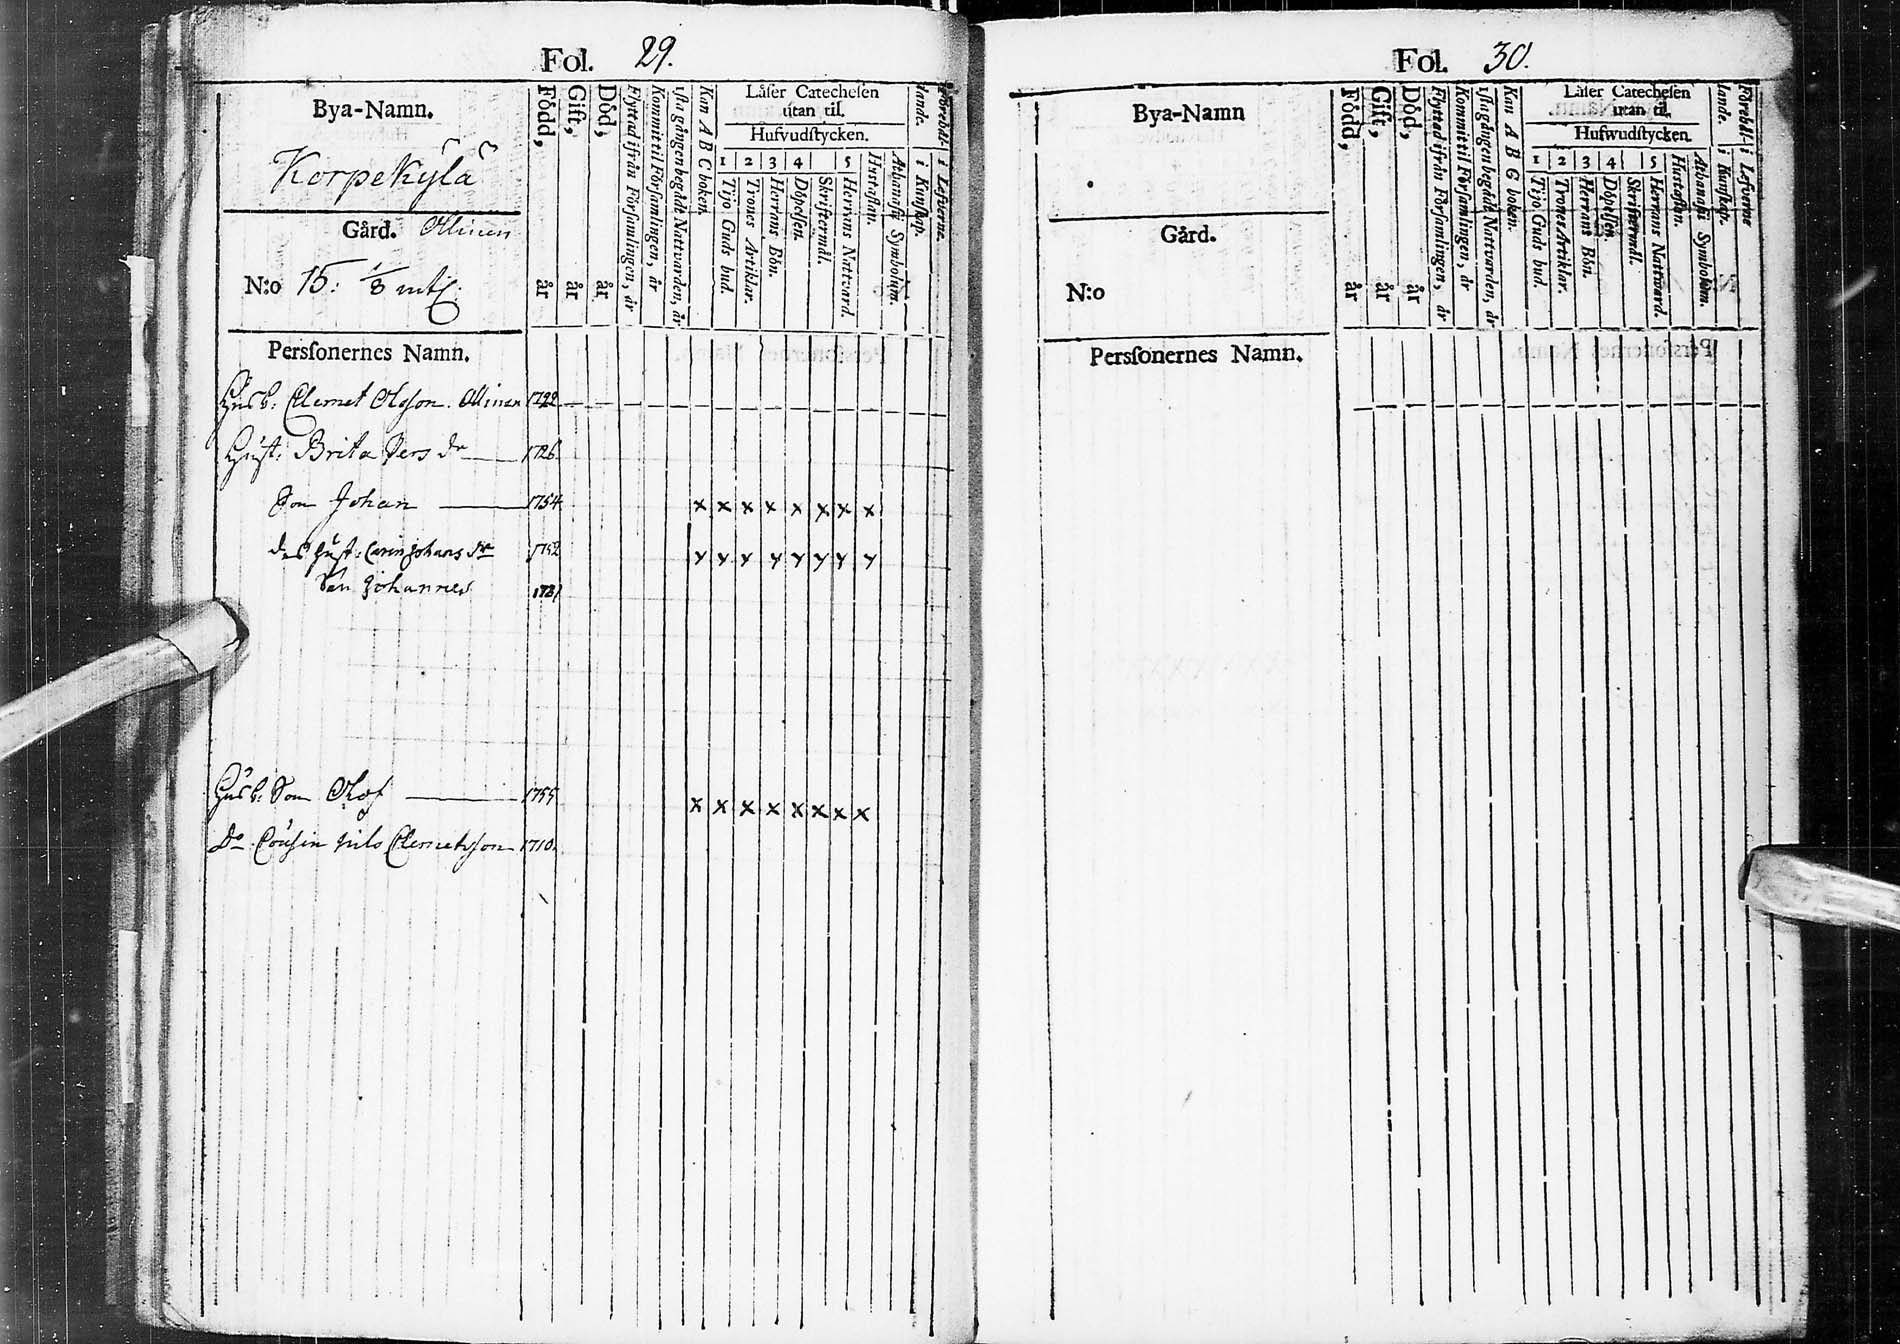 Fol. 29.
Bya-Namn.
Korpekylä
Gård. Ollinen
N:o 15. 1/8 mtl.
Perſonernes Namn.
Född, år
Gift, år
Död, år
Flyttad ifrån Förſamlingen, år
Kommit til Förſamlingen, år
1ſta gången begådt Nattvarden, år
Kan A B C boken.
Läſer Catecheſen
utan til.
Hufvudſtycken.
1 2 3 4 5
Tijo Guds bud.
Trones Artiklar.
Herrans Bön.
Döpelſen.
Skriftermål.
Herrans Nattvard.
Hustaflan.
Athanaſii Symbolum.
i Kunſkap.
i Lefverne.
Husb: Clemet Olofson Ollinen 1722
Hust: Brita Pers dr 1726
Son Johan 1754 x x x x x x x x
des hust: Carin Johans dr 1752 x x x x x x x x
Son Johannes
Husb: Son Olof 1755 x x x x x x x x
Do Cousin Nils Clemetsson 1710.
Fol. 30.
Bya-Namn
Gård.
N:o
Perſonernes Namn.
Född, år
Gift, år
Död, år
Flyttad ifrån Förſamlingen, år
Kommit til Förſamlingen, år
1ſta gången begådt Nattvarden, år
Kan A B C boken.
Läſer Catecheſen
utan til.
Hufwudſtycken.
1 2 3 4 5
Tijo Guds bud.
Trones Artiklar.
Herrans Bön.
Döpelſen.
Skriftermål.
Herrans Nattward.
Hustaflan.
Athanaſii Symbolum.
i Kunſkap.
i Lefverne